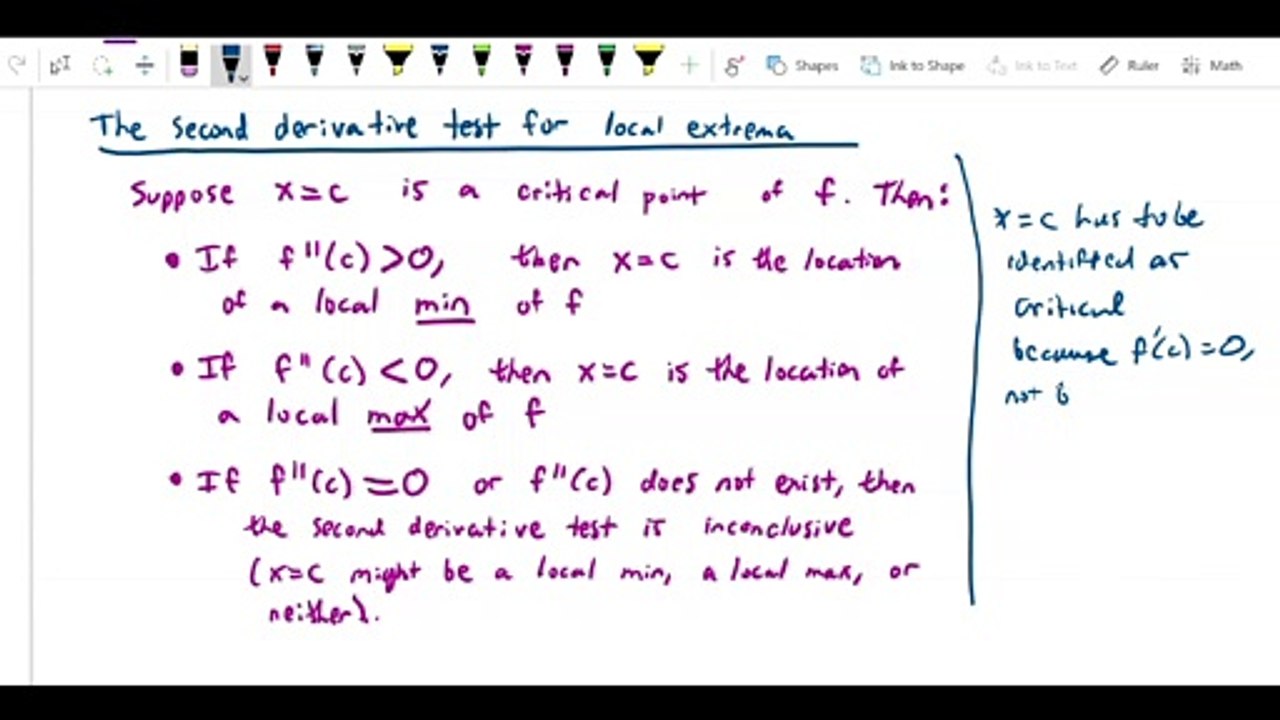 Shapes Ink to Shape Ink to Text Ruler Math
The second derivative test for local extrema
Suppose x=c is a critical point of f. Then:
• If f"(c) >0, then x=c is the location
of a local min of f
• If f"(c) <0, then x=c is the location of
a local max of f
• If f"(c) =0 or f"(c) does not exist, then
the second derivative test is inconclusive
(x=c might be a local min, a local max, or
neither).
x=c has to be
identified as
critical
because f'(c) =0,
not b